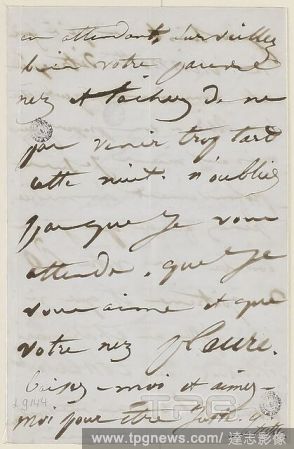 en attendant, surveillez
bien votre pauvre
nez et tachez de ne
pas venir trop tard
cette nuit. n'oubliez
pas que je vous
attends. que je
vous aime et que
votre nez pleure.
baisez-moi et aimez-
moi pour être juste.
L9144
TPG
www.tpgnews.com / 達志影像